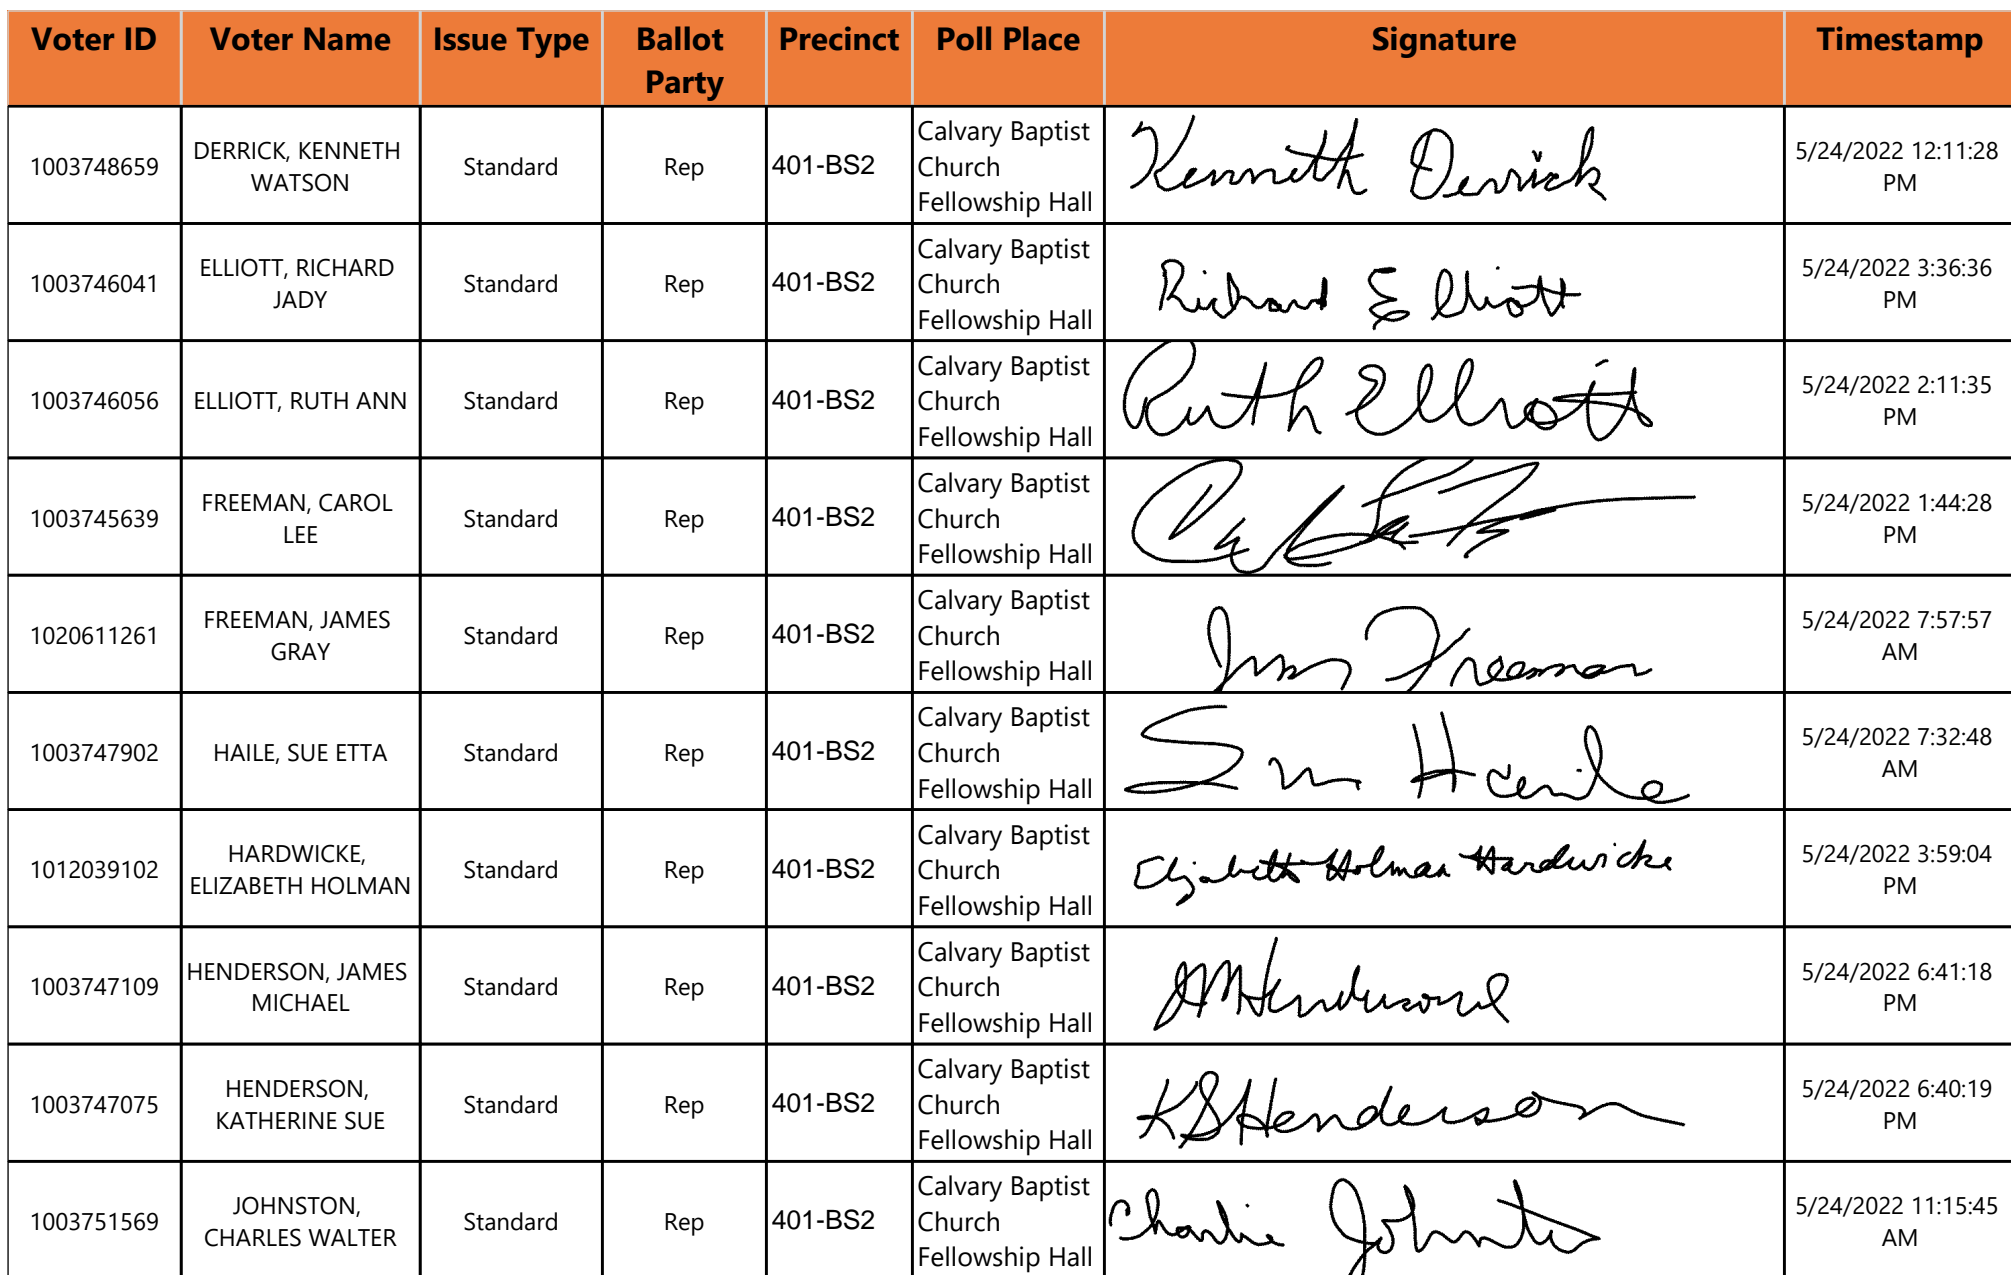 Voter ID Voter Name Issue Type Ballot Party Precinct Poll Place Signature Timestamp
1003748659 DERRICK, KENNETH WATSON Standard Rep 401-BS2 Calvary Baptist Church Fellowship Hall Kenneth Derrick 5/24/2022 12:11:28 PM
1003746041 ELLIOTT, RICHARD JADY Standard Rep 401-BS2 Calvary Baptist Church Fellowship Hall Richard Elliott 5/24/2022 3:36:36 PM
1003746056 ELLIOTT, RUTH ANN Standard Rep 401-BS2 Calvary Baptist Church Fellowship Hall Ruth Elliott 5/24/2022 2:11:35 PM
1003745639 FREEMAN, CAROL LEE Standard Rep 401-BS2 Calvary Baptist Church Fellowship Hall 5/24/2022 1:44:28 PM
1020611261 FREEMAN, JAMES GRAY Standard Rep 401-BS2 Calvary Baptist Church Fellowship Hall Freeman 5/24/2022 7:57:57 AM
1003747902 HAILE, SUE ETTA Standard Rep 401-BS2 Calvary Baptist Church Fellowship Hall Sue Haile 5/24/2022 7:32:48 AM
1012039102 HARDWICKE, ELIZABETH HOLMAN Standard Rep 401-BS2 Calvary Baptist Church Fellowship Hall Elizabeth Holman Hardwicke 5/24/2022 3:59:04 PM
1003747109 HENDERSON, JAMES MICHAEL Standard Rep 401-BS2 Calvary Baptist Church Fellowship Hall JMHenderson 5/24/2022 6:41:18 PM
1003747075 HENDERSON, KATHERINE SUE Standard Rep 401-BS2 Calvary Baptist Church Fellowship Hall KSHenderson 5/24/2022 6:40:19 PM
1003751569 JOHNSTON, CHARLES WALTER Standard Rep 401-BS2 Calvary Baptist Church Fellowship Hall Charlie Johnston 5/24/2022 11:15:45 AM